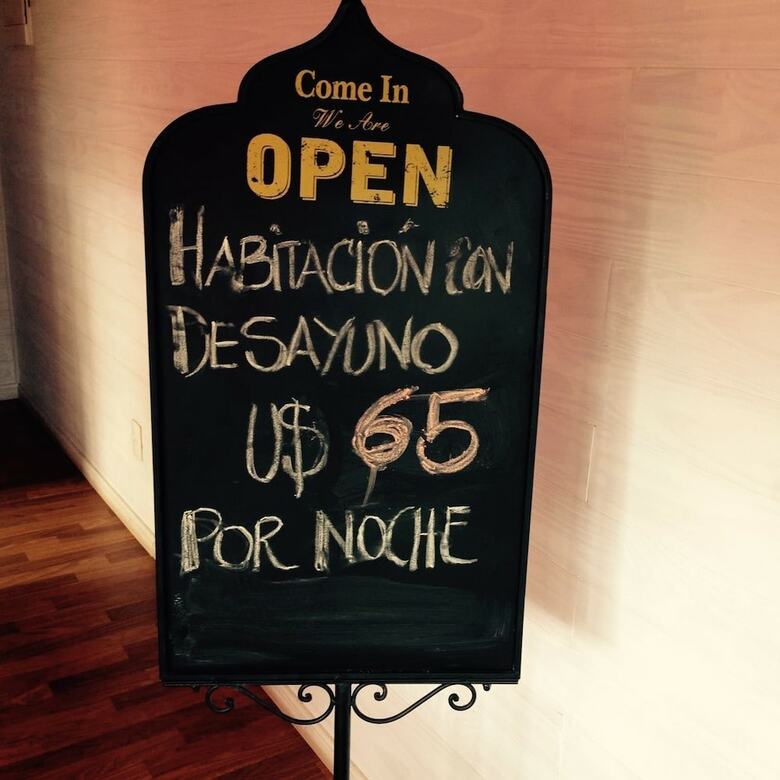 Come In
We Are
OPEN
HABITACIÓN CON
DESAYUNO
U$ 65
POR NOCHE